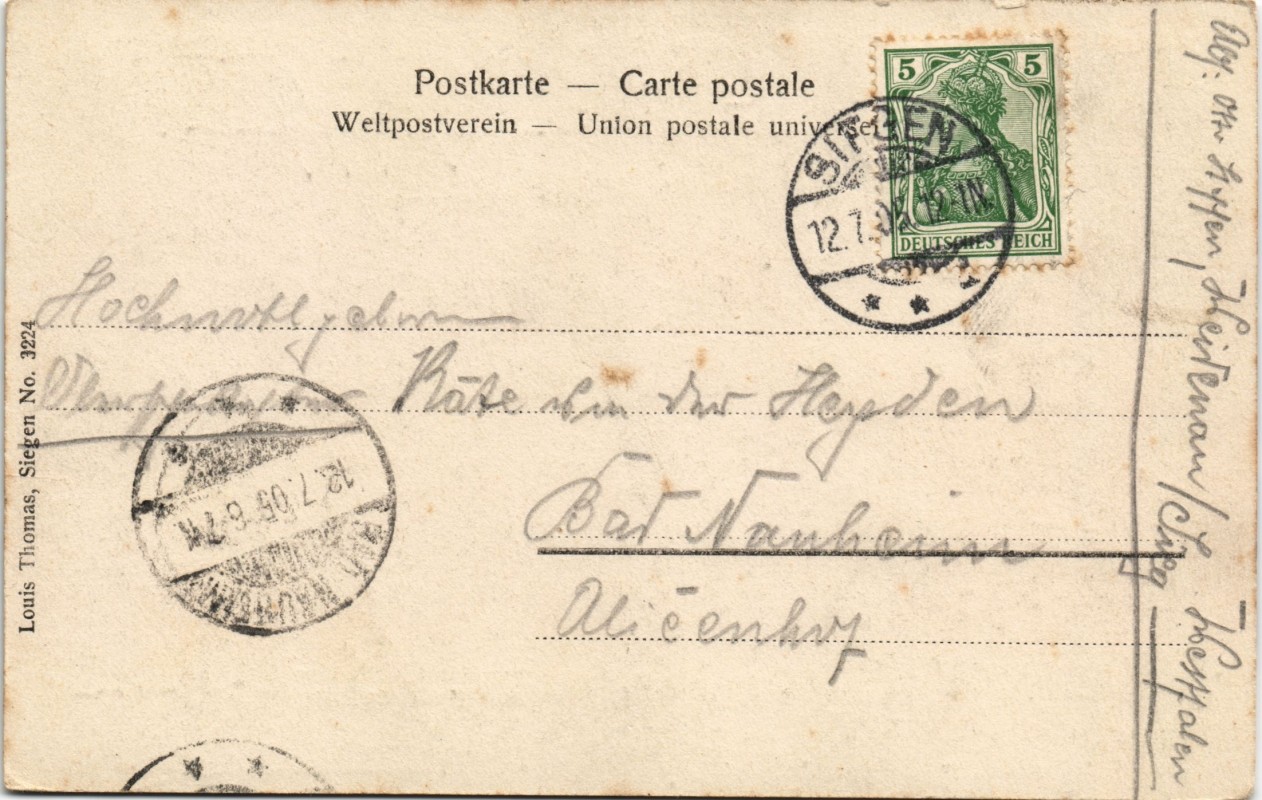 Postkarte — Carte postale
Weltpostverein — Union postale universel
5 5
DEUTSCHES REICH
SIEGEN
12.7.05. 12-1N.
Hochwohlgeboren
Käte von der Heyden
Bad Nauheim
Alicenhof
12.7.05 6-7N
BAD NAUHEIM
Louis Thomas, Siegen No. 3224
Abs. Otto Weidenau / Sieg
Westfalen